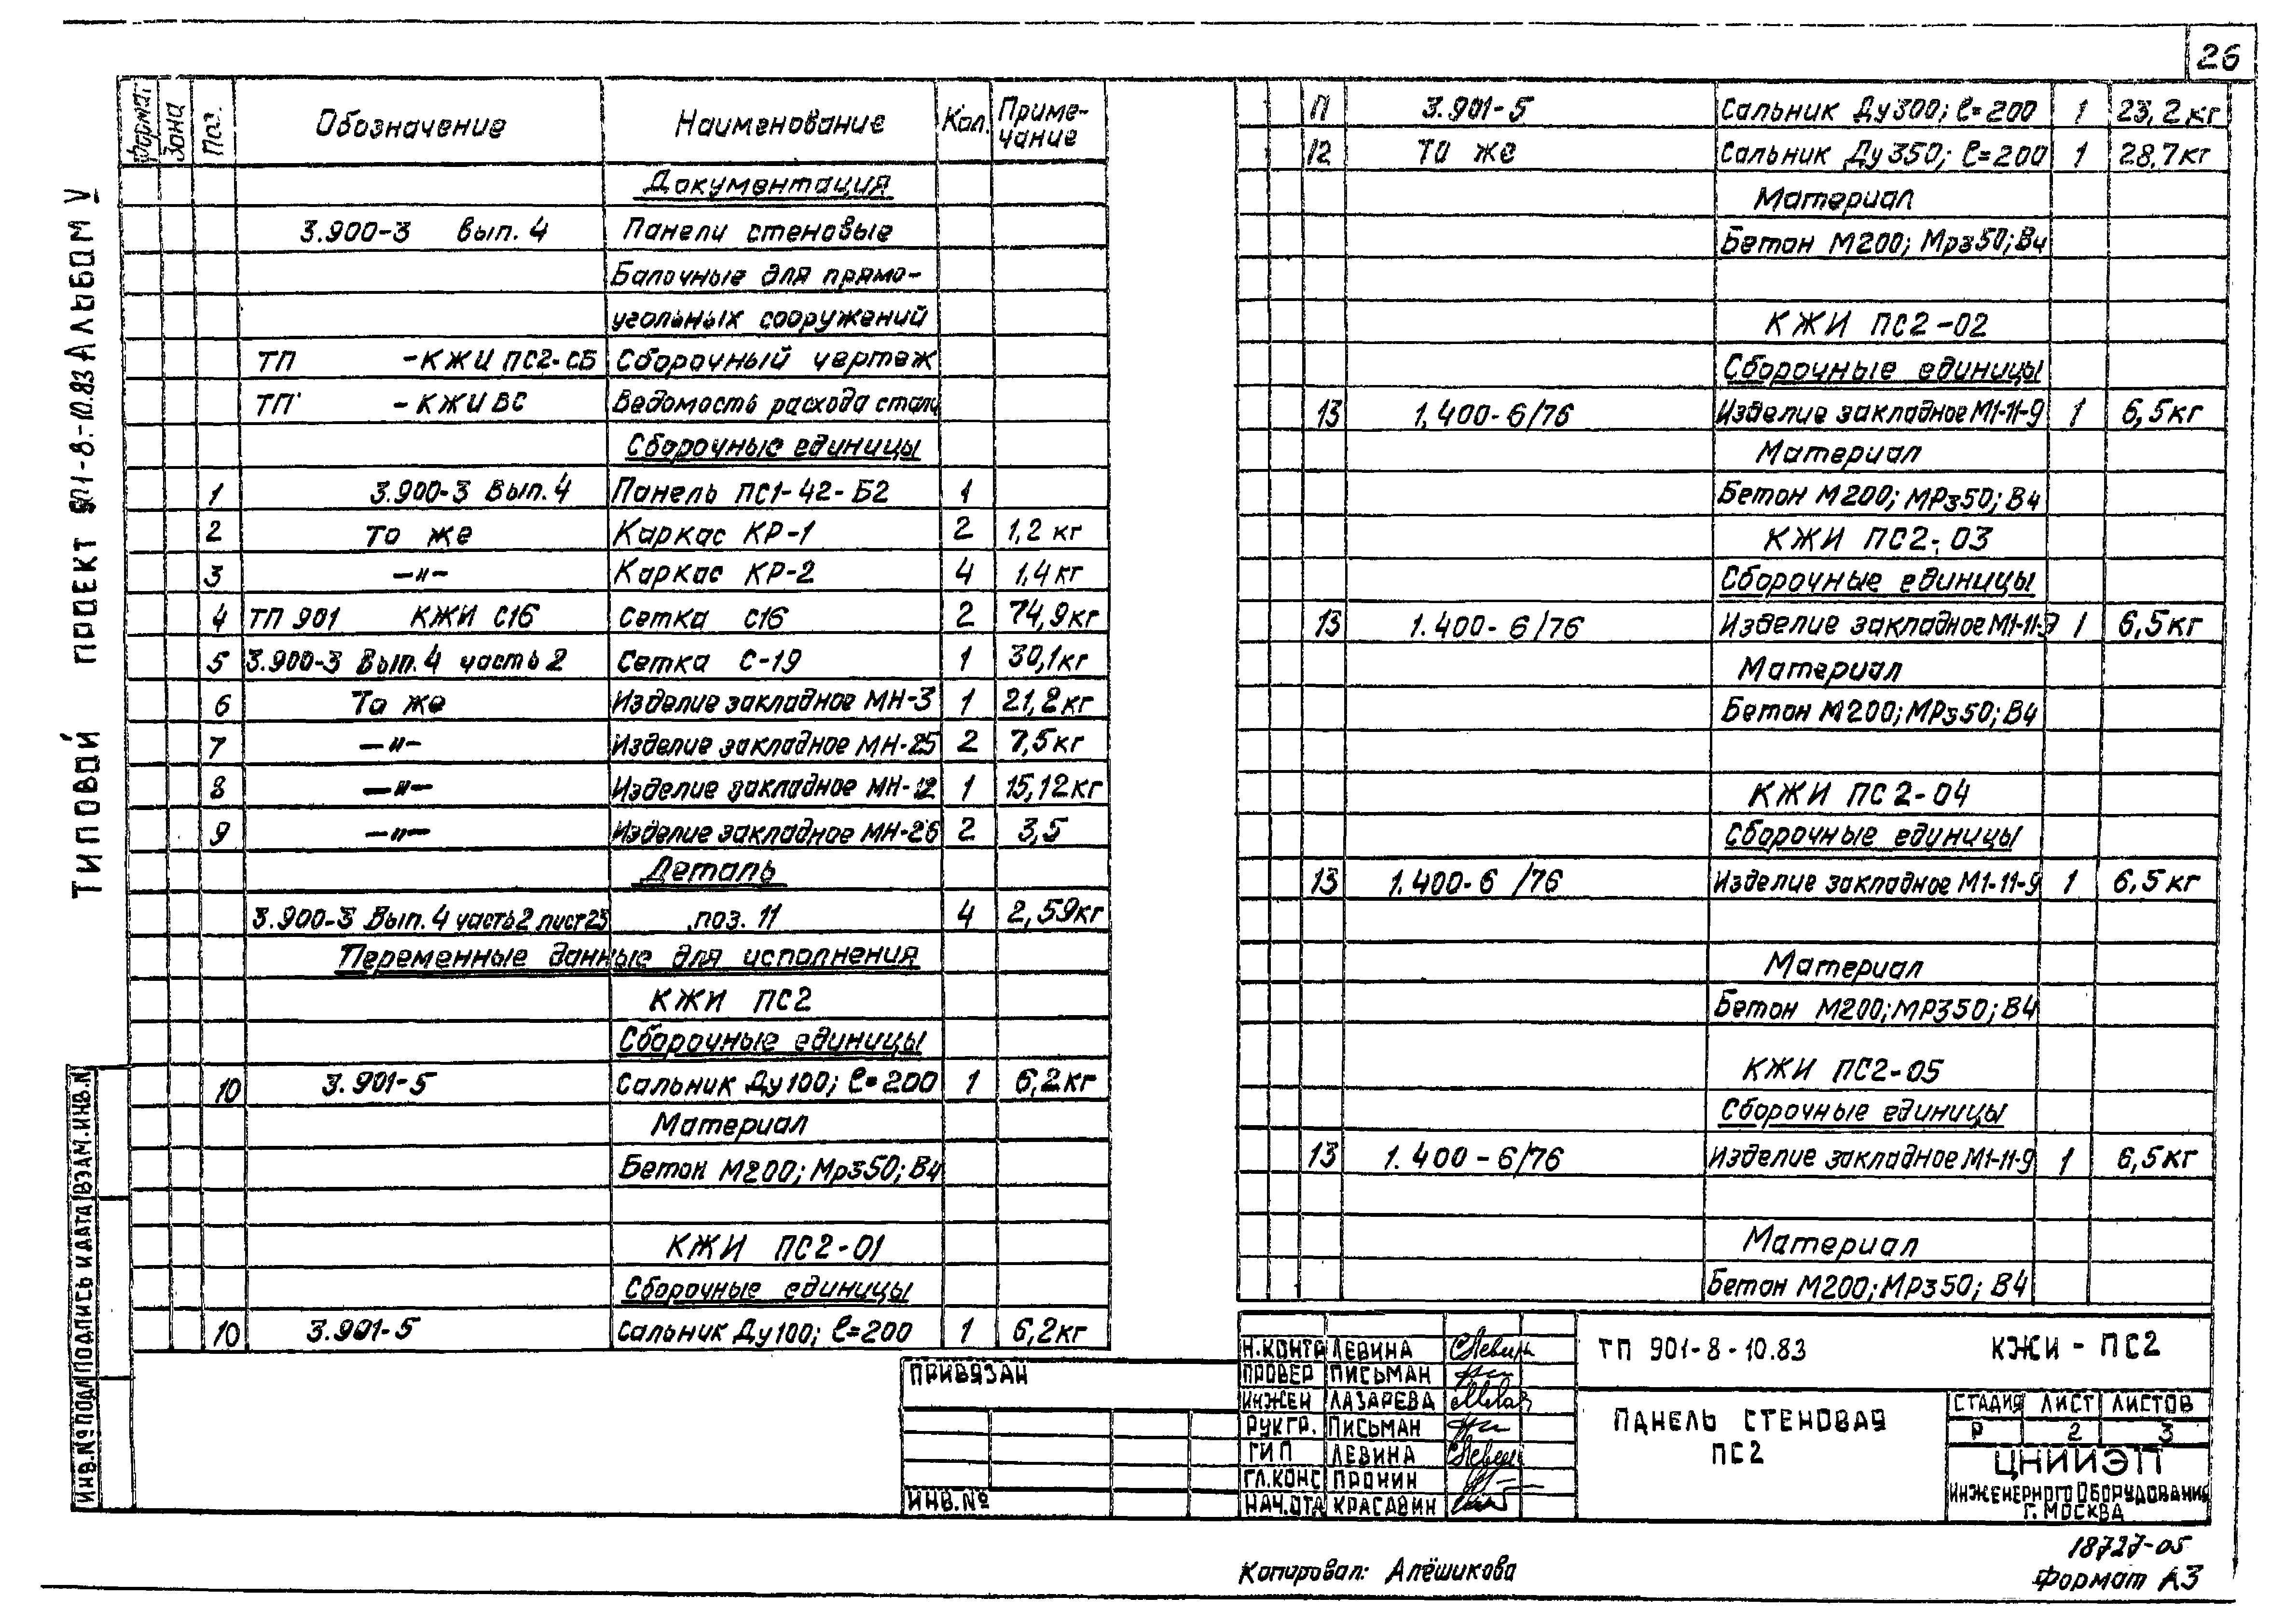 26
ТИПОВОЙ ПРОЕКТ 901-8-10.83 АЛЬБОМ V
Формат Зона Поз. Обозначение Наименование Кол. Приме-
чание
Документация
3.900-3 Вып. 4 Панели стеновые
балочные для прямо-
угольных сооружений
ТП -КЖИ ПС2-СБ Сборочный чертеж
ТП -КЖИ ВС Ведомость расхода стали
Сборочные единицы
1 3.900-3 Вып. 4 Панель ПС1-42-Б2 1
2 То же Каркас КР-1 2 1,2 кг
3 —"— Каркас КР-2 4 1,4 кг
4 ТП 901 КЖИ С16 Сетка С16 2 74,9кг
5 3.900-3 Вып. 4 часть 2 Сетка С-19 1 30,1кг
6 То же Изделие закладное МН-3 1 21,2кг
7 —"— Изделие закладное МН-25 2 7,5кг
8 —"— Изделие закладное МН-12 1 15,12кг
9 —"— Изделие закладное МН-26 2 3,5
Деталь
3.900-3 Вып. 4 часть 2 лист 23 поз. 11 4 2,59кг
Переменные данные для исполнения
КЖИ ПС2
Сборочные единицы
10 3.901-5 Сальник Ду100; ℓ=200 1 6,2кг
Материал
Бетон М200; Мрз50; В4
КЖИ ПС2-01
Сборочные единицы
10 3.901-5 Сальник Ду100; ℓ=200 1 6,2кг
11 3.901-5 Сальник Ду300; ℓ=200 1 23,2кг
12 То же Сальник Ду350; ℓ=200 1 28,7кг
Материал
Бетон М200; Мрз50; В4
КЖИ ПС2-02
Сборочные единицы
13 1.400-6/76 Изделие закладное М1-11-9 1 6,5кг
Материал
Бетон М200; МРз50; В4
КЖИ ПС2-03
Сборочные единицы
13 1.400-6/76 Изделие закладное М1-11-9 1 6,5кг
Материал
Бетон М200; МРз50; В4
КЖИ ПС2-04
Сборочные единицы
13 1.400-6/76 Изделие закладное М1-11-9 1 6,5кг
Материал
Бетон М200; МРЗ50; В4
КЖИ ПС2-05
Сборочные единицы
13 1.400-6/76 Изделие закладное М1-11-9 1 6,5кг
Материал
Бетон М200; МРз50; В4
ИНВ.№ПОДЛ ПОДПИСЬ И ДАТА ВЗАМ.ИНВ.N
ПРИВЯЗАН
ИНВ.№
Н.КОНТР ЛЕВИНА
ПРОВЕР ПИСЬМАН
ИНЖЕН ЛАЗАРЕВА
РУК ГР. ПИСЬМАН
ГИП ЛЕВИНА
ГЛ.КОНС ПРОНИН
НАЧ.ОТД КРАСАВИН
ТП 901-8-10.83 КЖИ-ПС2
ПАНЕЛЬ СТЕНОВАЯ
ПС2
СТАДИЯ ЛИСТ ЛИСТОВ
Р 2 3
ЦНИИЭП
ИНЖЕНЕРНОГО ОБОРУДОВАНИЯ
Г. МОСКВА
18727-05
Копировал: Алёшикова
Формат А3